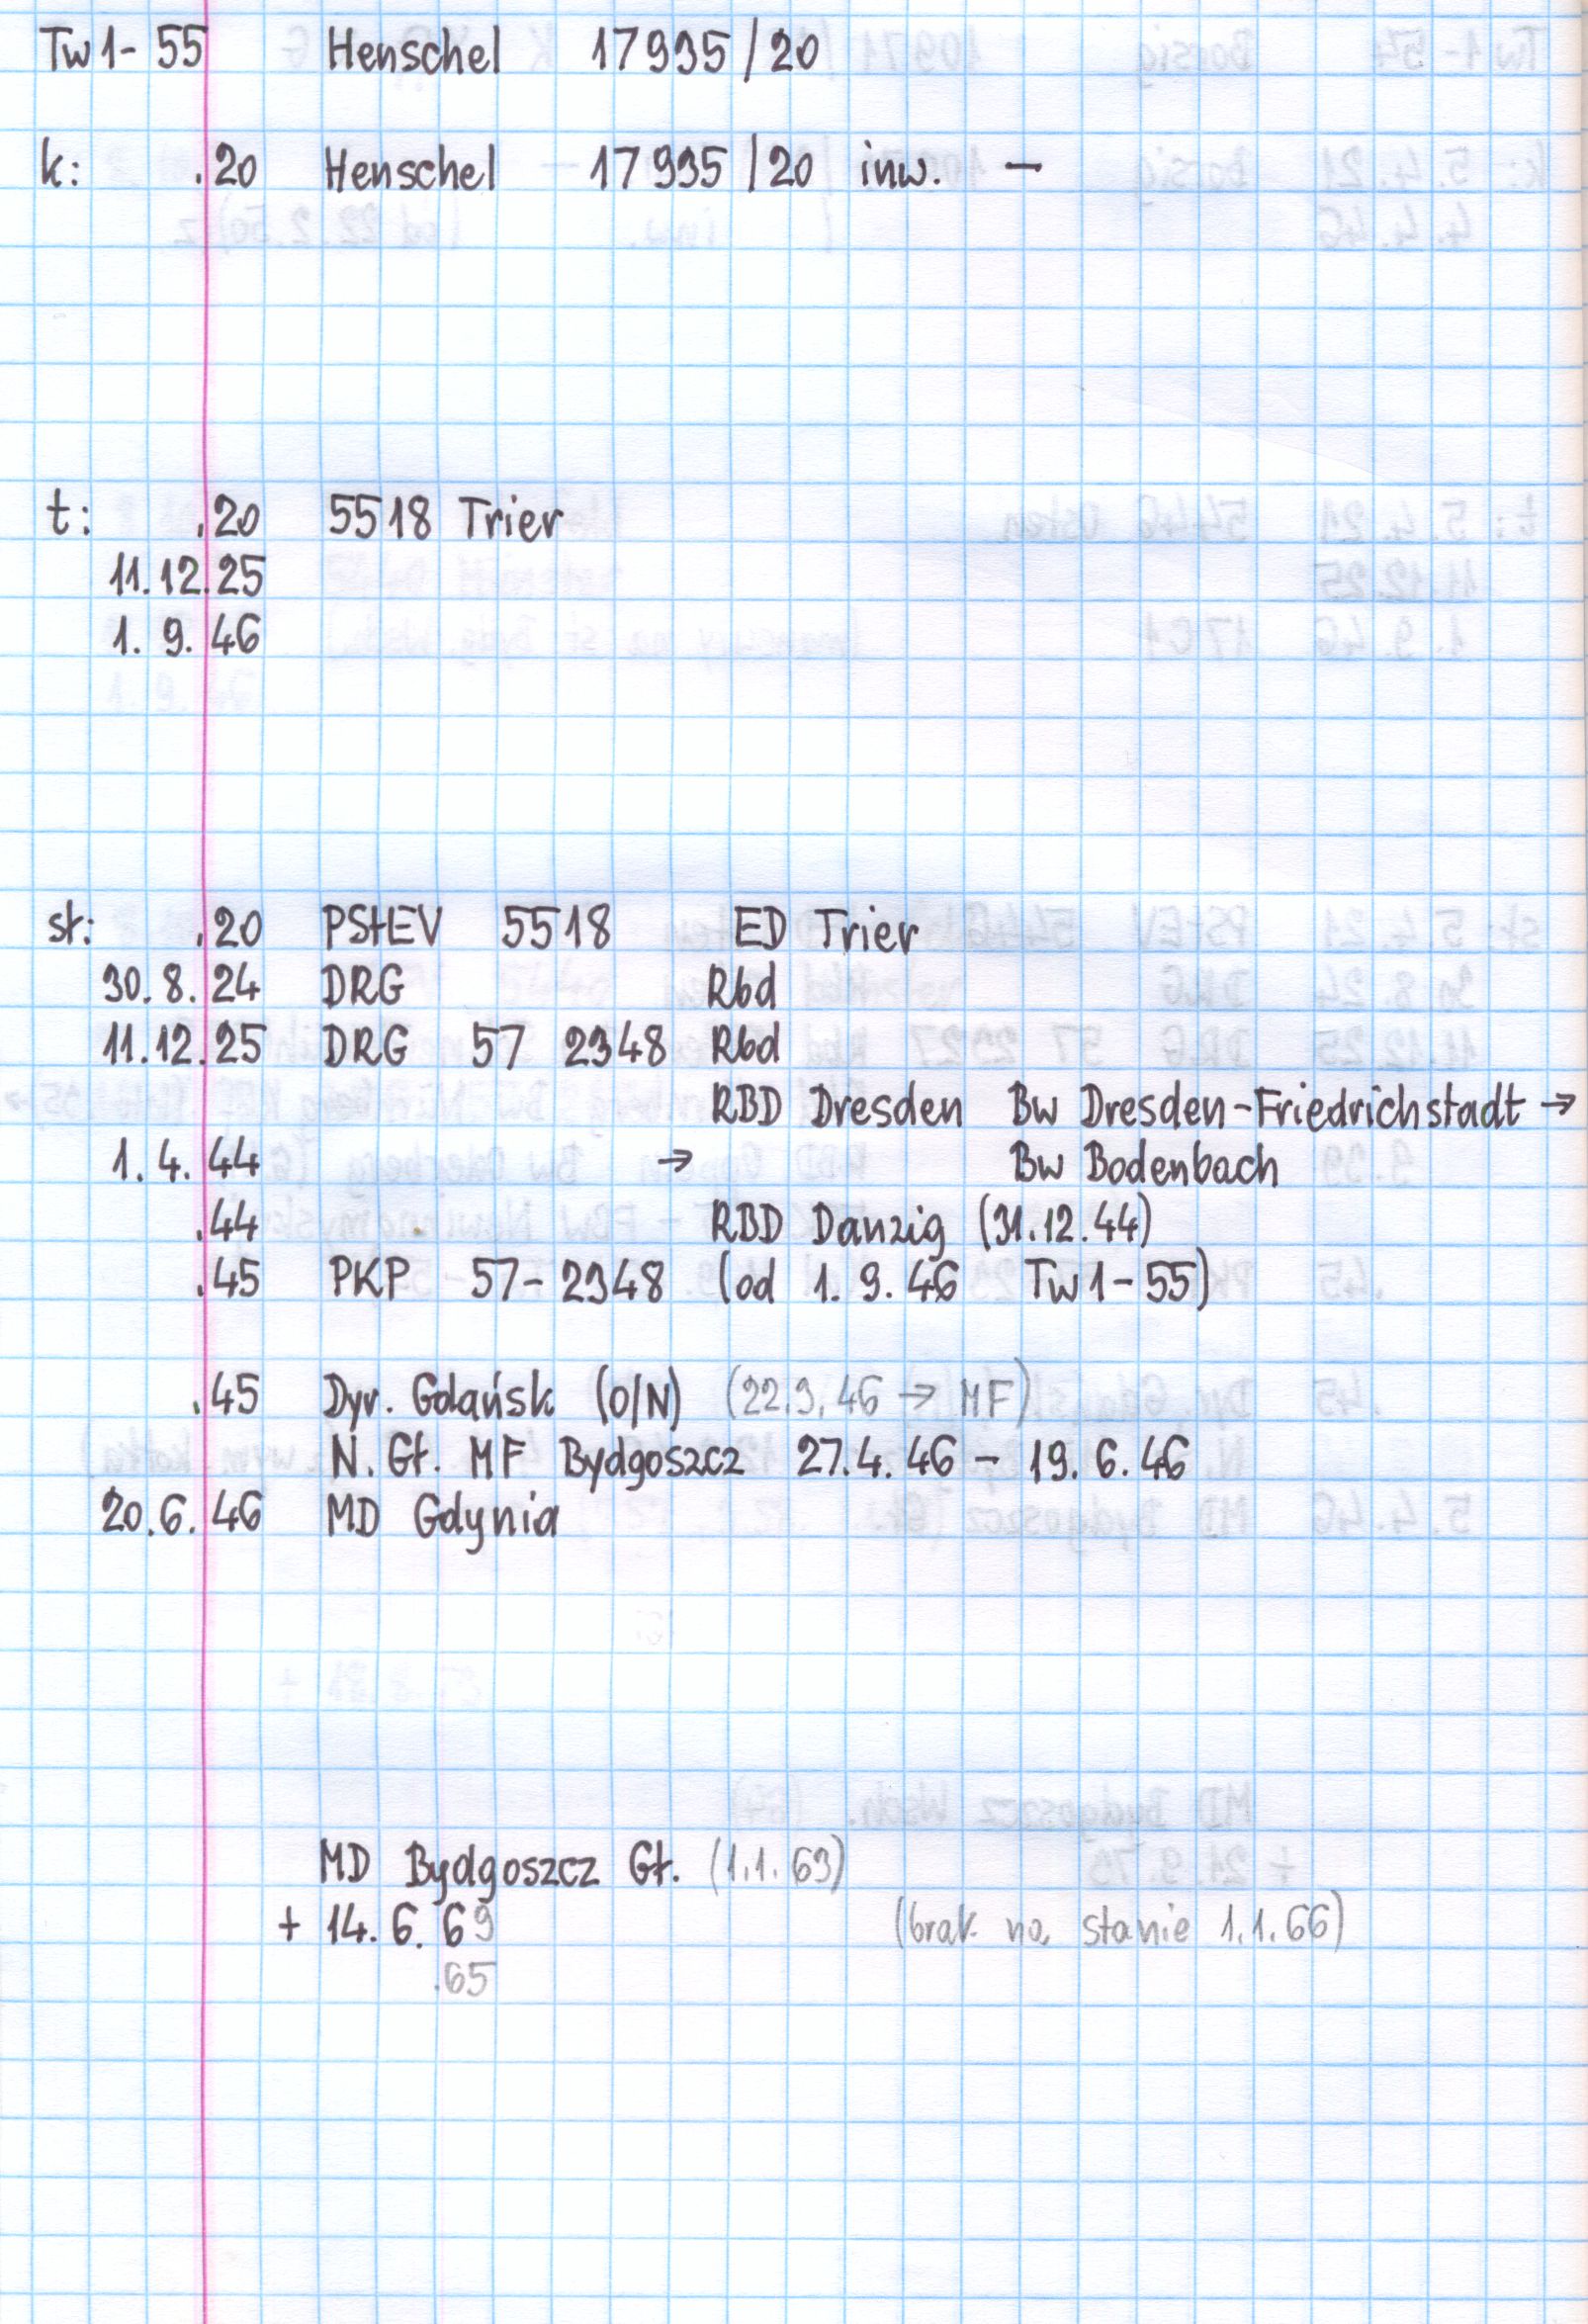 Tw1-55 Henschel 17935/20
k: .20 Henschel 17935/20 inw. —
t: .20 5518 Trier
11.12.25
1. 9. 46
st: .20 PStEV 5518 ED Trier
30. 8. 24 DRG Rbd
11.12.25 DRG 57 2348 Rbd
RBD Dresden Bw Dresden-Friedrichstadt →
1. 4. 44 → Bw Bodenbach
.44 RBD Danzig (31.12.44)
.45 PKP 57-2348 (od 1. 9. 46 Tw1-55)
.45 Dyr. Gdańsk (O/N) (22.3.46 → MF)
N. Gł. MF Bydgoszcz 27.4.46 - 19.6.46
20.6.46 MD Gdynia
MD Bydgoszcz Gł. (1.1.63)
+ 14. 6. 69 (brak na stanie 1.1.66)
.65